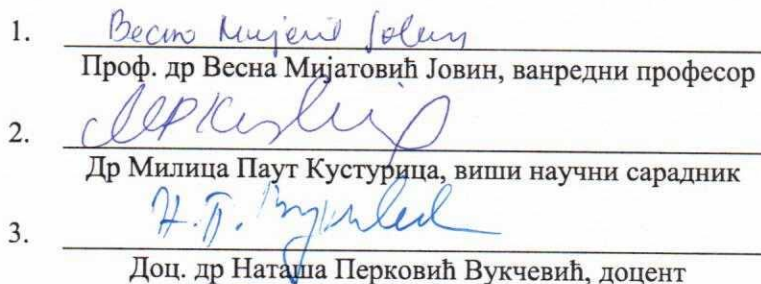 1.
Проф. др Весна Мијатовић Јовин, ванредни професор
2.
Др Милица Паут Кустурица, виши научни сарадник
3. Н. П.
Доц. др Наташа Перковић Вукчевић, доцент